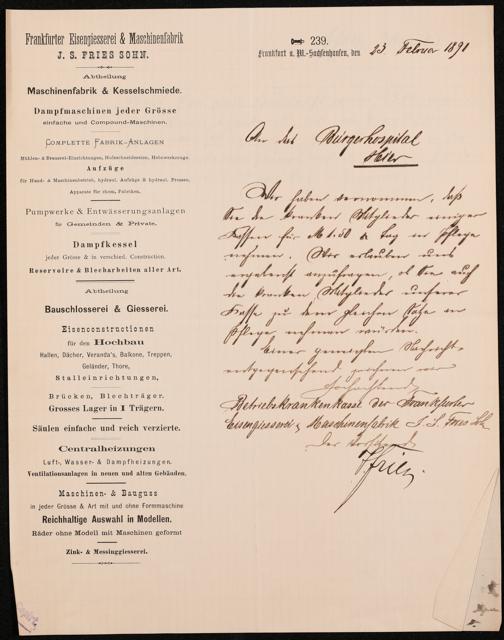 Frankfurter Eisengiesserei & Maschinenfabrik
J. S. FRIES SOHN.
Abtheilung
Maschinenfabrik & Kesselschmiede.
Dampfmaschinen jeder Grösse
einfache und Compound-Maschinen.
COMPLETTE FABRIK-ANLAGEN
Mühlen- & Brauerei-Einrichtungen, Holzschneidereien, Hebewerkzeuge.
Aufzüge
für Hand- & Maschinenbetrieb, hydraul. Aufzüge & hydraul. Pressen,
Apparate für chem. Fabriken.
Pumpwerke & Entwässerungsanlagen
für Gemeinden & Private.
Dampfkessel
jeder Grösse & in verschied. Construction.
Reservoire & Blecharbeiten aller Art.
Abtheilung
Bauschlosserei & Giesserei.
Eisenconstructionen
für den Hochbau
Hallen, Dächer, Veranda's, Balkone, Treppen,
Geländer, Thore,
Stalleinrichtungen,
Brücken, Blechträger.
Grosses Lager in I Trägern.
Säulen einfache und reich verzierte.
Centralheizungen
Luft-, Wasser- & Dampfheizungen.
Ventilationsanlagen in neuen und alten Gebäuden.
Maschinen- & Bauguss
in jeder Grösse & Art mit und ohne Formmaschine
Reichhaltige Auswahl in Modellen.
Räder ohne Modell mit Maschinen geformt
Zink- & Messinggiesserei.
239.
Frankfurt a. M.-Sachsenhausen, den 23 Februar 1891
An das Bürgerhospital
Hier
Wir haben vernommen, daß
Sie die kranken Mitglieder einiger
Kassen für M 1.50 p Tag in Pflege
nehmen. Wir erlauben uns
ergebenst anzufragen, ob Sie auch
die kranken Mitglieder unserer
Kasse zu dem gleichen Satze in
Pflege nehmen würden.
Einer geneigten Nachricht
entgegensehend zeichnen wir
Hochachtend
Betriebskrankenkasse der Frankfurter
Eisengiesserei & Maschinenfabrik J. S. Fries Sohn
Der Vorstand
Fries